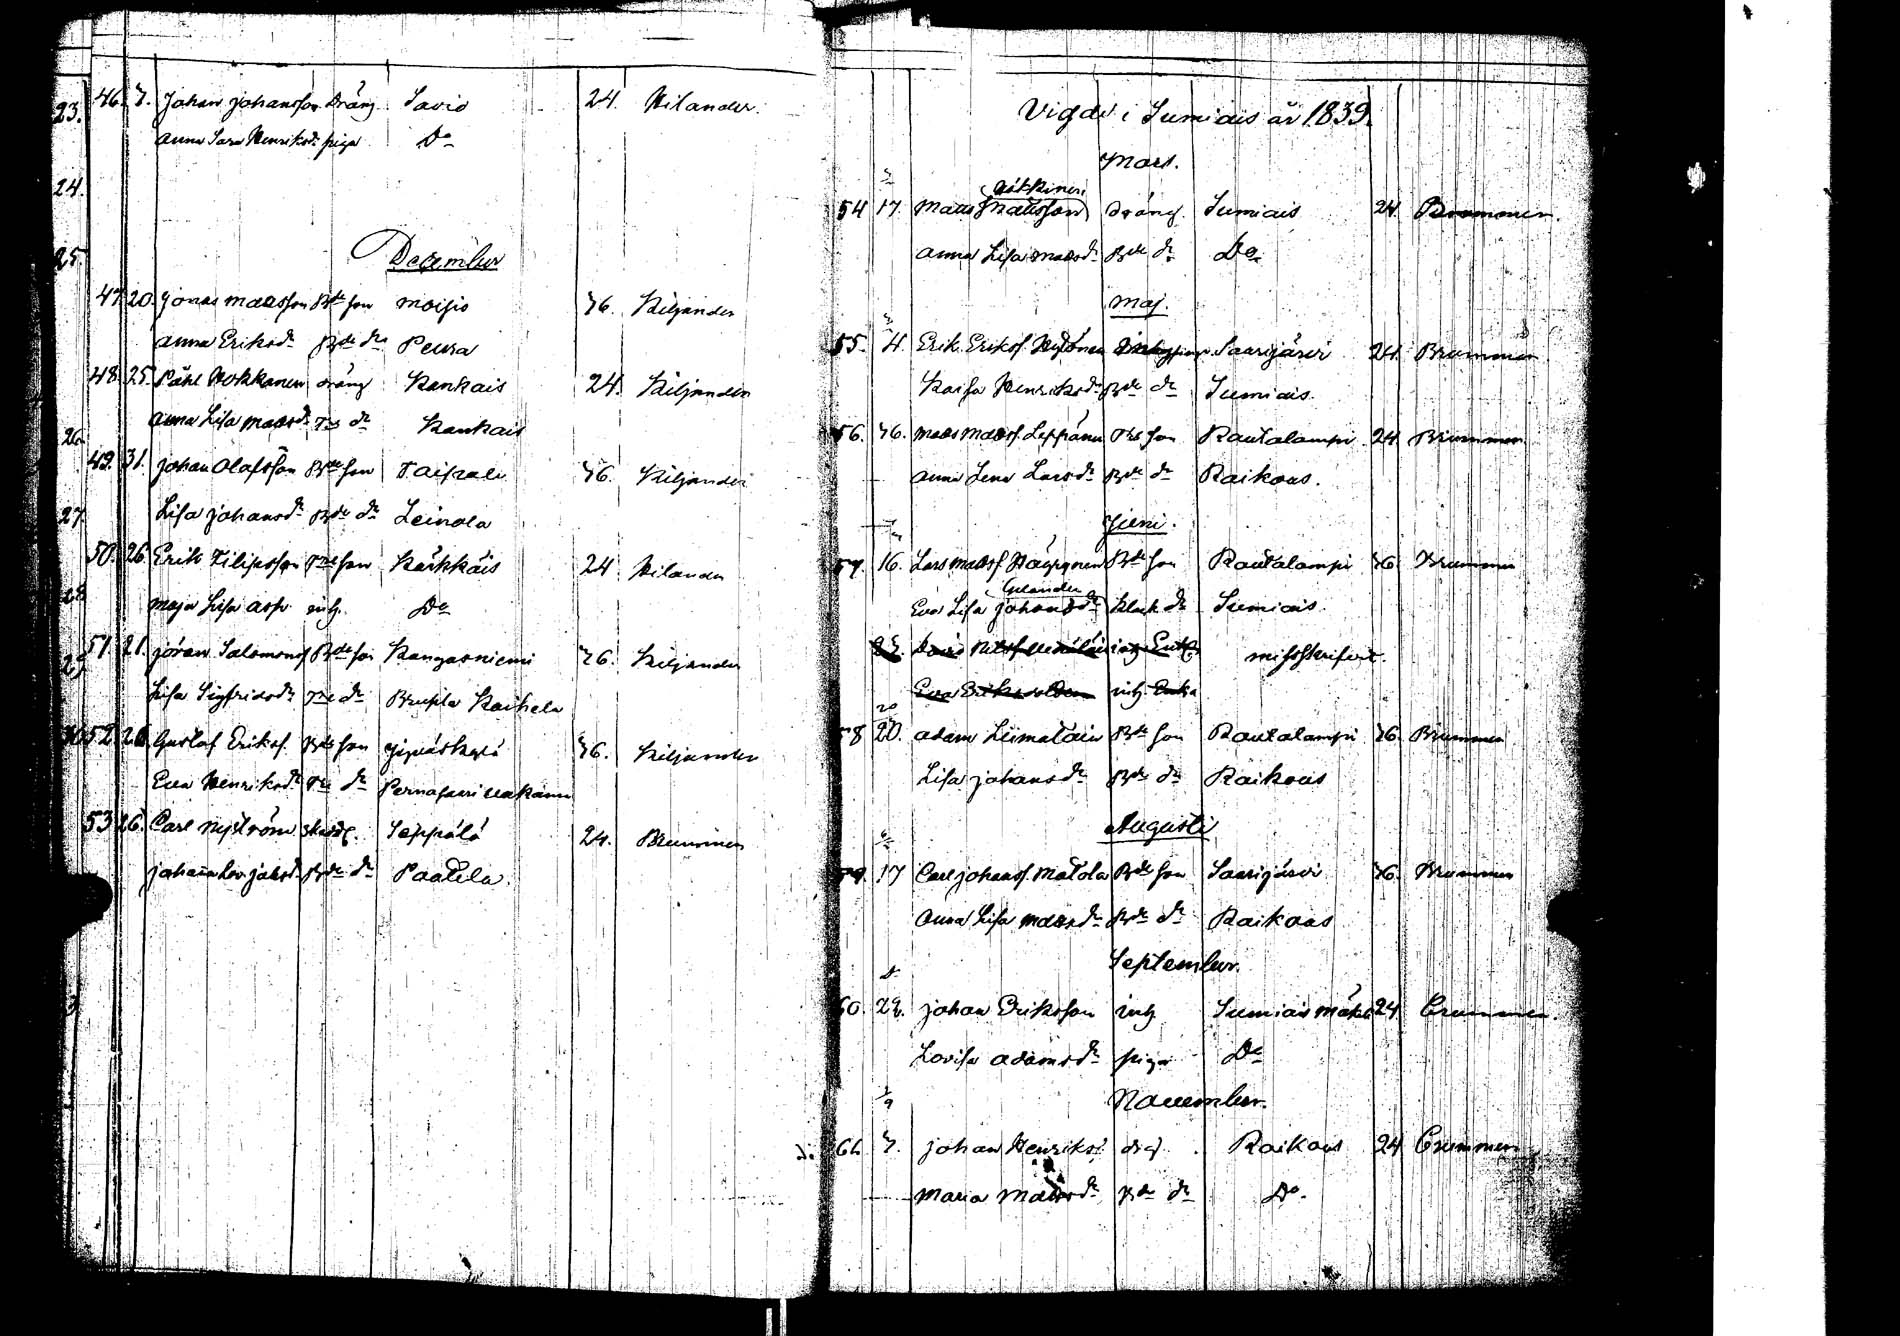 46. 7. Johan Johansson Dräng Savio 24. Hilander.
Anna Sara Henriksdr piga Do
December
47 20. Jonas Matsson Bde son Moisio 76. Kiljander
Anna Eriksdr Bde dr Peura
48. 25. Påhl Hokkanen dräng Kankais 24. Kiljander
Anna Lisa Matsdr Trs dr Kankais
49. 31. Johan Olafsson Bde son Taipale 76. Kiljander
Lisa Johansdr Bde dr Leinola
50. 26 Erik Filipsson Trs son Kärkkäis 24 Hilander
Maja Lisa Asp inh. Do
51. 21. Jöran Salomons Bde son Kangasniemi 76. Kiljander
Lisa Sigfridsdr Trs dr Kaihela
52. 26 Gustaf Eriks. Bde son Jyväskylä 76. Kiljander
Eva Henriksdr Trs dr
53 26. Carl Nyström Seppälä 24. Brummer
Bde dr Paatela.
23.
24.
25.
26
27.
28
29
30
Vigde i Sumiais år 1839.
Mars.
Häkkinen
54 17. Matts Mattsson dräng Sumiais 24 Brummer.
Anna Lisa Matsdr Bde dr Do
Maj.
55. 4. Erik Eriks. Saarijärvi 24. Brummer
Kaisa Henriksdr Bde dr Sumiais.
56. 76. Mats Mats. Leppänen Trs son Rautalampi 24. Brummer
Anna Lena Larsdr Bde dr Raikous.
Juni.
57. 16. Lars Mats. Häyrynen Bde son Rautalampi 76 Brummer
Eva Lisa Johansdr Klock dr Sumiais.
misskrifvit.
Eva
20
58 20. Adam Liimatain Bde son Rautalampi 76. Brummer
Lisa Johansdr Bde dr Raikous
Augusti
59. 17 Carl Johans. Matola Bde son Saarijärvi 76. Brummer
Anna Lisa Matsdr Bde dr Raikous
September.
60. 29. Johan Eriksson inh Sumiais 24 Brummer.
Lovisa Adamsdr piga Do
November.
7. Johan Henriks. Raikous 24 Brummer
Maria Matsdr Bde dr Do